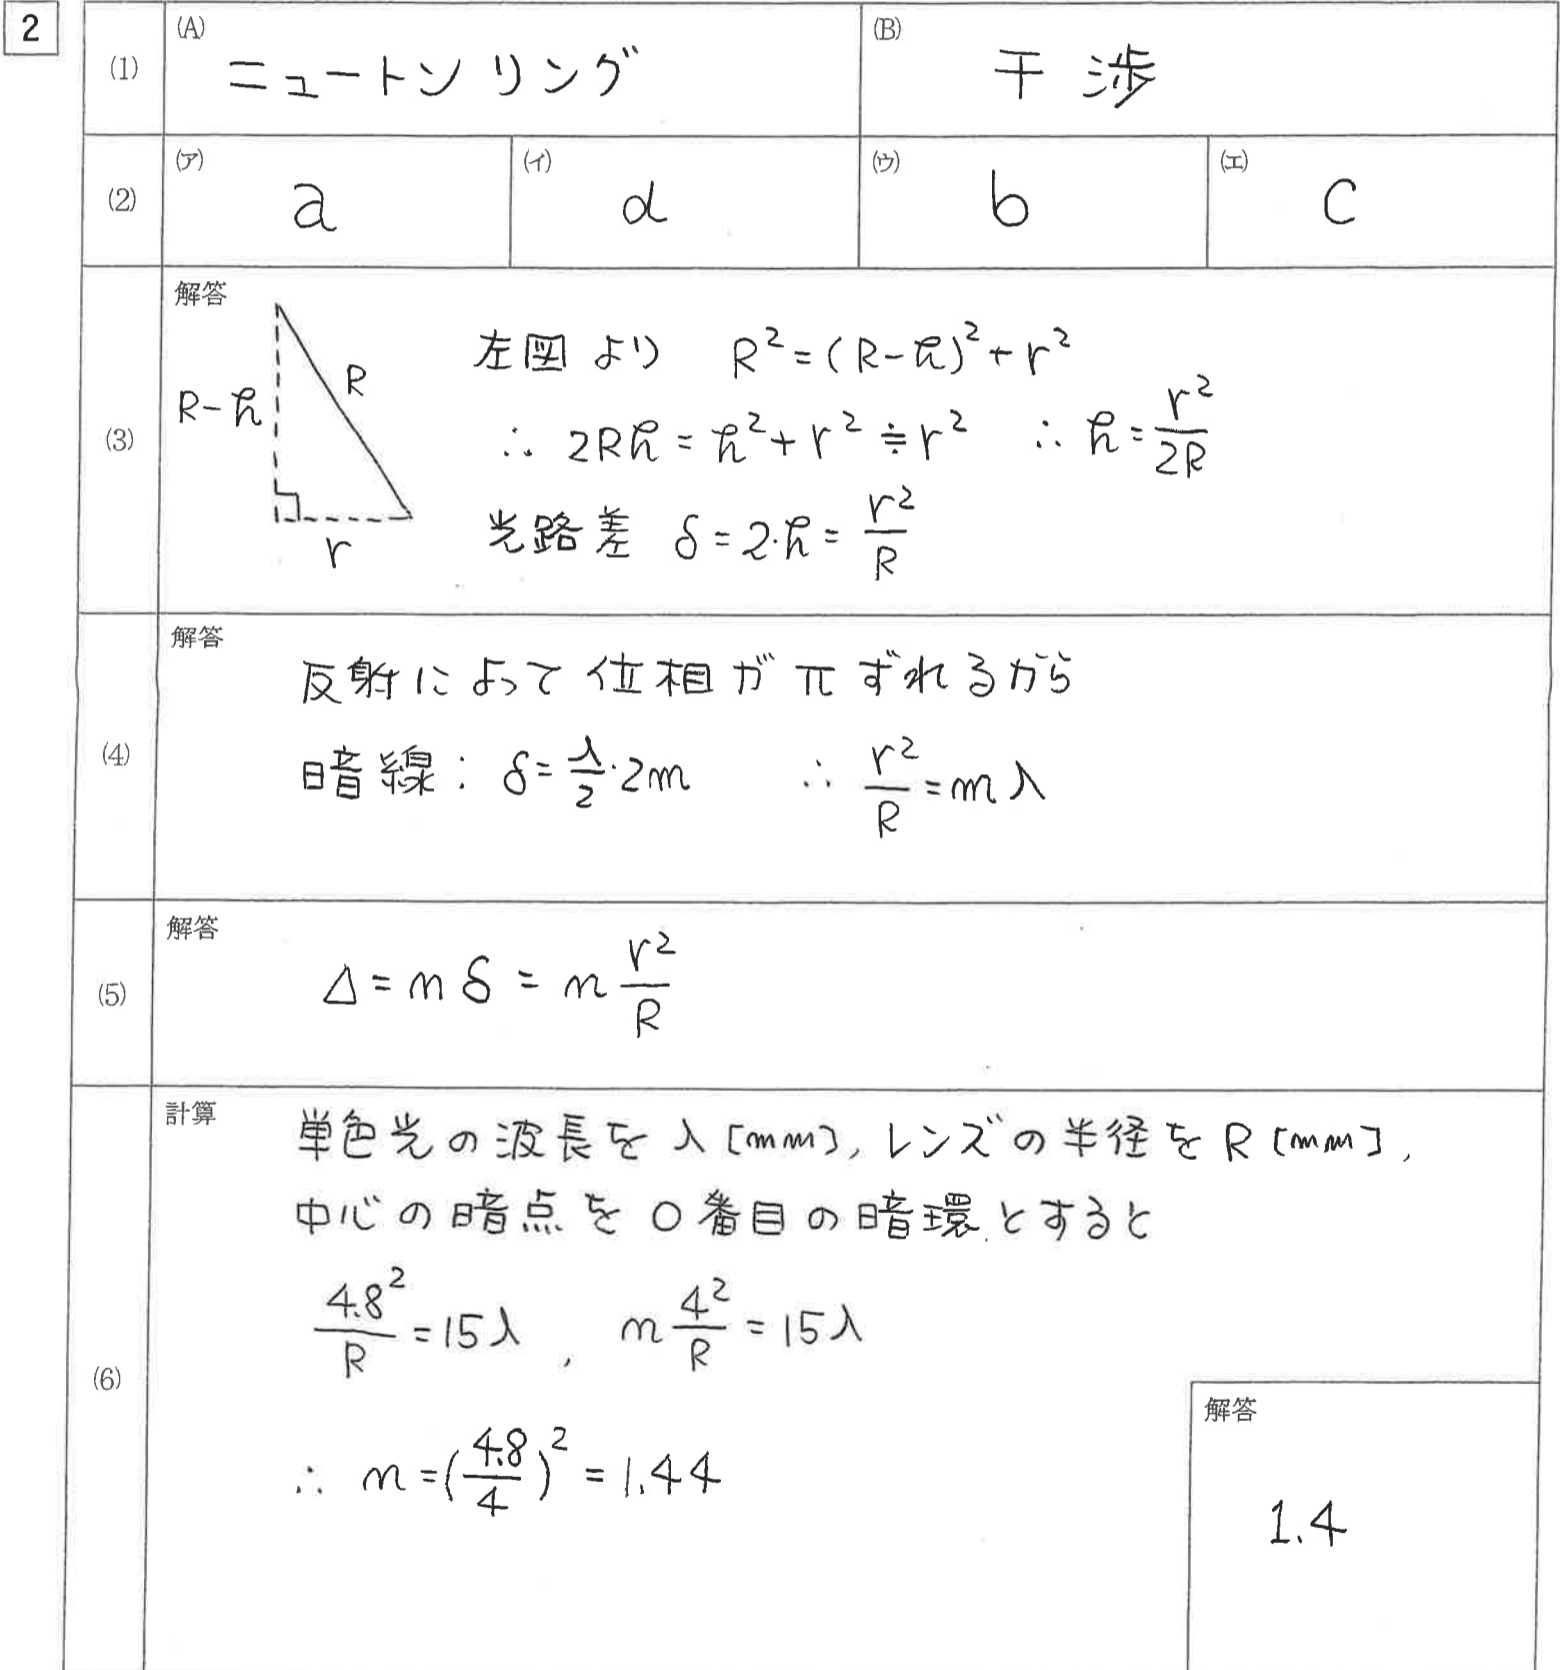 2
(1)
(A)
ニュートンリング
(B)
干渉
(2)
(ア)
a
(イ)
d
(ウ)
b
(エ)
c
(3)
解答
R-h
R
r
左図より R²=(R-h)²+r²
∴ 2Rh=h²+r²≒r² ∴ h=r²/2R
光路差 δ=2·h=r²/R
(4)
解答
反射によって位相がπずれるから
暗線: δ=λ/2·2m ∴ r²/R=mλ
(5)
解答
Δ=nδ=n r²/R
(6)
計算
単色光の波長をλ[mm], レンズの半径をR[mm],
中心の暗点を0番目の暗環とすると
4.8²/R=15λ , n 4²/R=15λ
∴ n=(4.8/4)²=1.44
解答
1.4